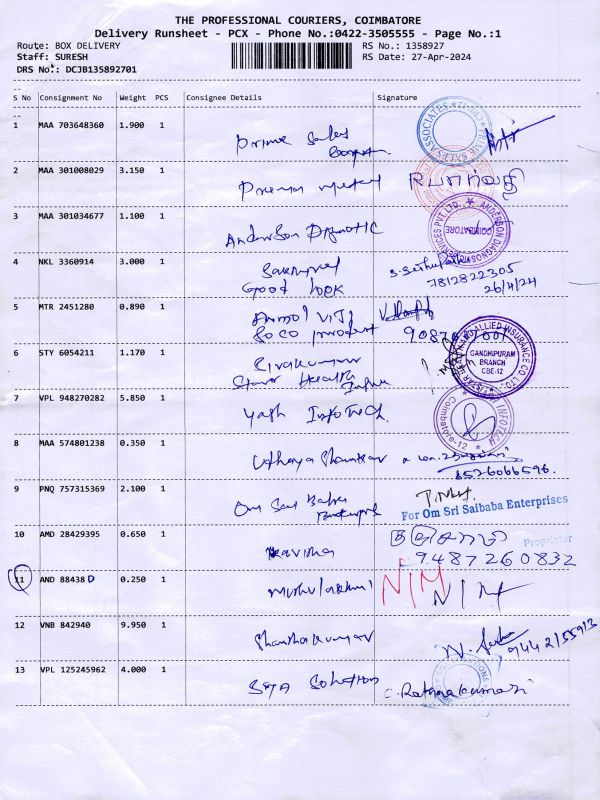 THE PROFESSIONAL COURIERS, COIMBATORE
Delivery Runsheet - PCX - Phone No.:0422-3505555 - Page No.:1
Route: BOX DELIVERY RS No.: 1358927
Staff: SURESH RS Date: 27-Apr-2024
DRS No.: DCJB135892701
S No Consignment No Weight PCS Consignee Details Signature
1 MAA 703648360 1.900 1 Prime Sales
2 MAA 301008029 3.150 1
3 MAA 301034677 1.100 1 Anderson Diagnostic
ANDERSON DIAGNOSTIC SERVICES PVT. LTD. COIMBATORE
4 NKL 3360914 3.000 1
Good look 7812822305
26/4/24
5 MTR 2451280 0.890 1
6 STY 6054211 1.170 1 Sivakumar
Star Health
ALLIED INSURANCE CO. LTD. GANDHIPURAM BRANCH CBE-12
7 VPL 948270282 5.850 1 Yash InfoTech
INFOTECH Coimbatore-12
8 MAA 574801238 0.350 1 Udhaya Shankar
8526066596.
9 PNQ 757315369 2.100 1 Om Sai Baba
For Om Sri Saibaba Enterprises
Proprietor
10 AMD 28429395 0.650 1 Kavitha
9487260832
11 AND 88438 D 0.250 1 N/M
12 VNB 842940 9.950 1 Shanthakumar
13 VPL 125245962 4.000 1 Solution C. Rathnakumari